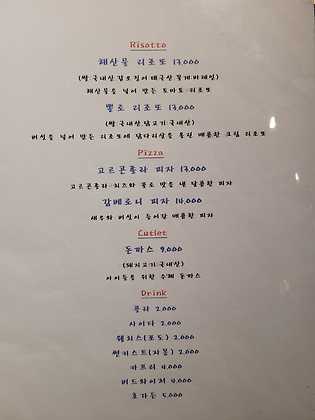 Risotto
해산물 리조또 17,000
(쌀:국내산,갑오징어:태국산,꽃게:바레인)
해산물을 넣어 만든 토마토 리조또
뽈로 리조또 17,000
(쌀:국내산,닭고기:국내산)
버섯을 넣어 만든 리조또에 닭다리살을 올린 매콤한 크림 리조또
Pizza
고르곤졸라 피자 17,000
고르곤졸라 치즈와 꿀로 맛을 낸 달콤한 피자
감베로니 피자 19,000
새우와 버섯이 들어간 매콤한 피자
Cutlet
돈까스 9,000
(돼지고기:국내산)
아이들을 위한 수제 돈까스
Drink
콜라 2,000
사이다 2,000
웰치스(포도) 2,000
썬키스트(자몽) 2,000
카프리 4,000
버드와이저 4,000
호가든 5,000